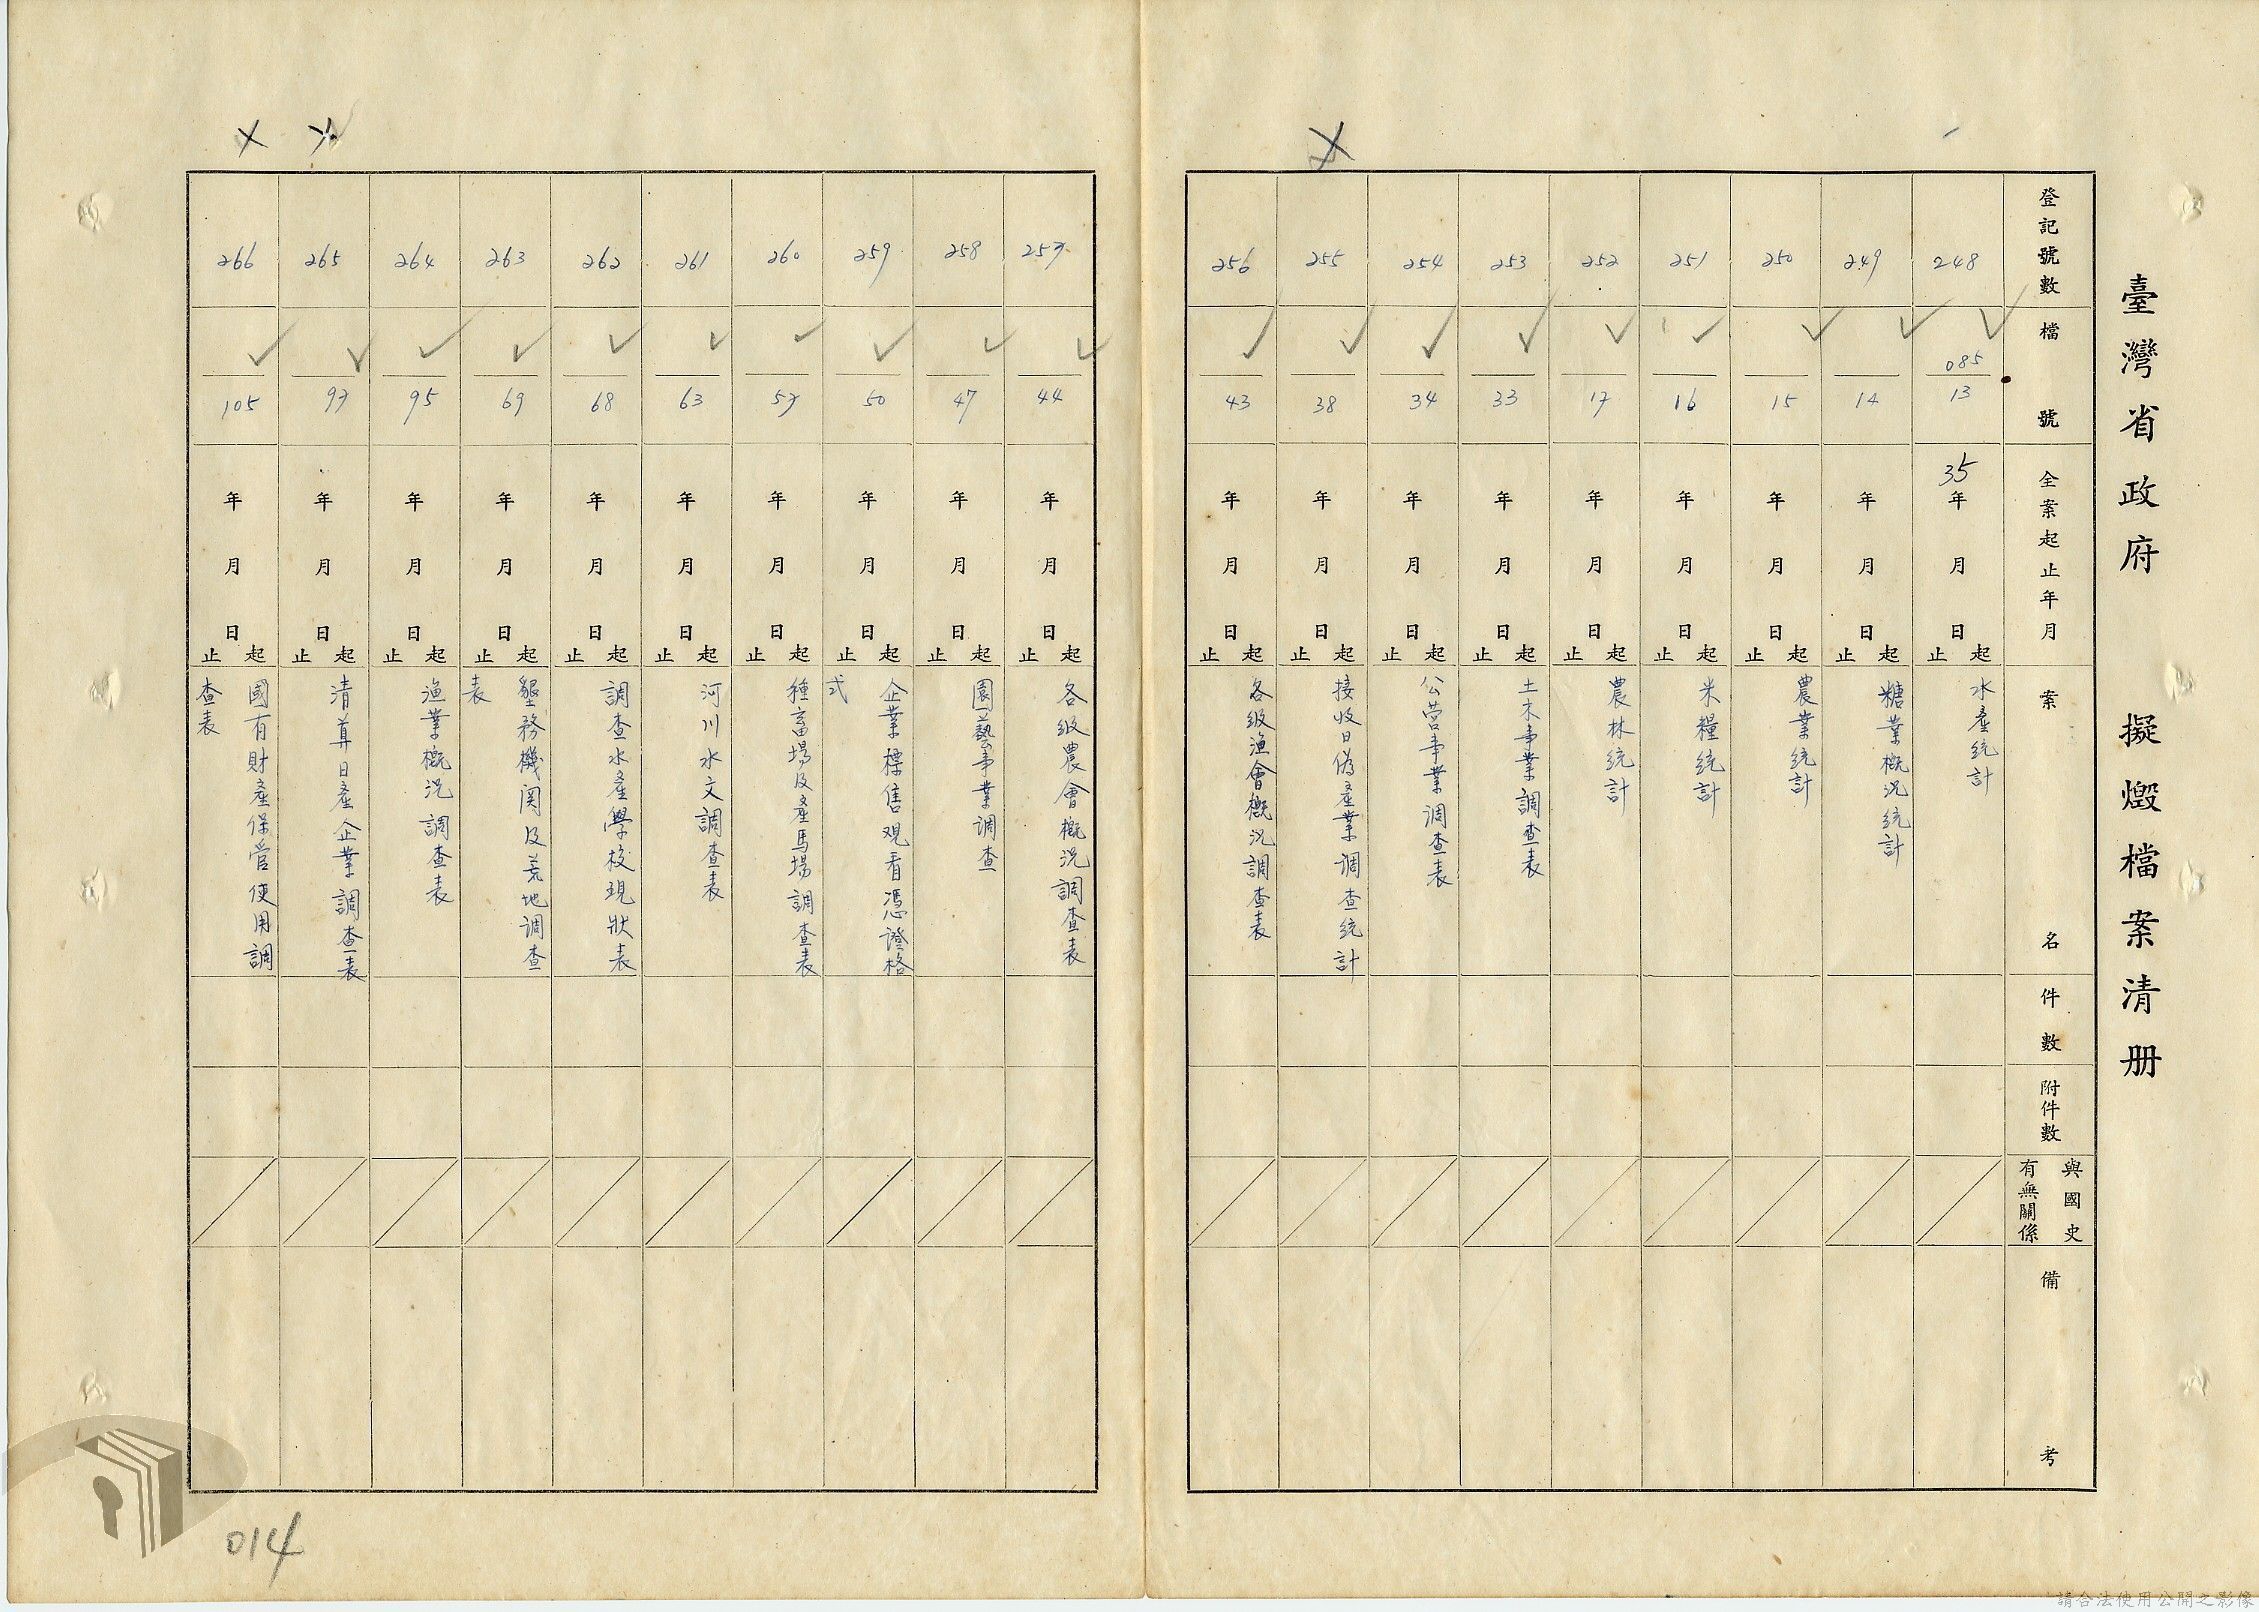 臺灣省政府 擬燬檔案清册
登記號數 檔號 全案起止年月 案名 件數 附件數 與國史有無關係 備考
248 085/13 35年月日起止 水產統計
249 14 年月日起止 糖業概況統計
250 15 年月日起止 農業統計
251 16 年月日起止 米糧統計
252 17 年月日起止 農林統計
253 33 年月日起止 土木事業調查表
254 34 年月日起止 公营事業调查表
255 38 年月日起止 接收日偽產業调查統計
256 43 年月日起止 各級漁會概況調查表
257 44 年月日起止 各級農會概況調查表
258 47 年月日起止 園藝事業调查
259 50 年月日起止 企業標售观看憑證格式
260 57 年月日起止 種畜場及產馬場調查表
261 63 年月日起止 河川水文調查表
262 68 年月日起止 調查水產學校現狀表
263 69 年月日起止 墾務機関及荒地调查表
264 95 年月日起止 漁業概況調查表
265 97 年月日起止 清算日產企業調查表
266 105 年月日起止 國有財產保管使用調查表
014
請合法使用公開之影像